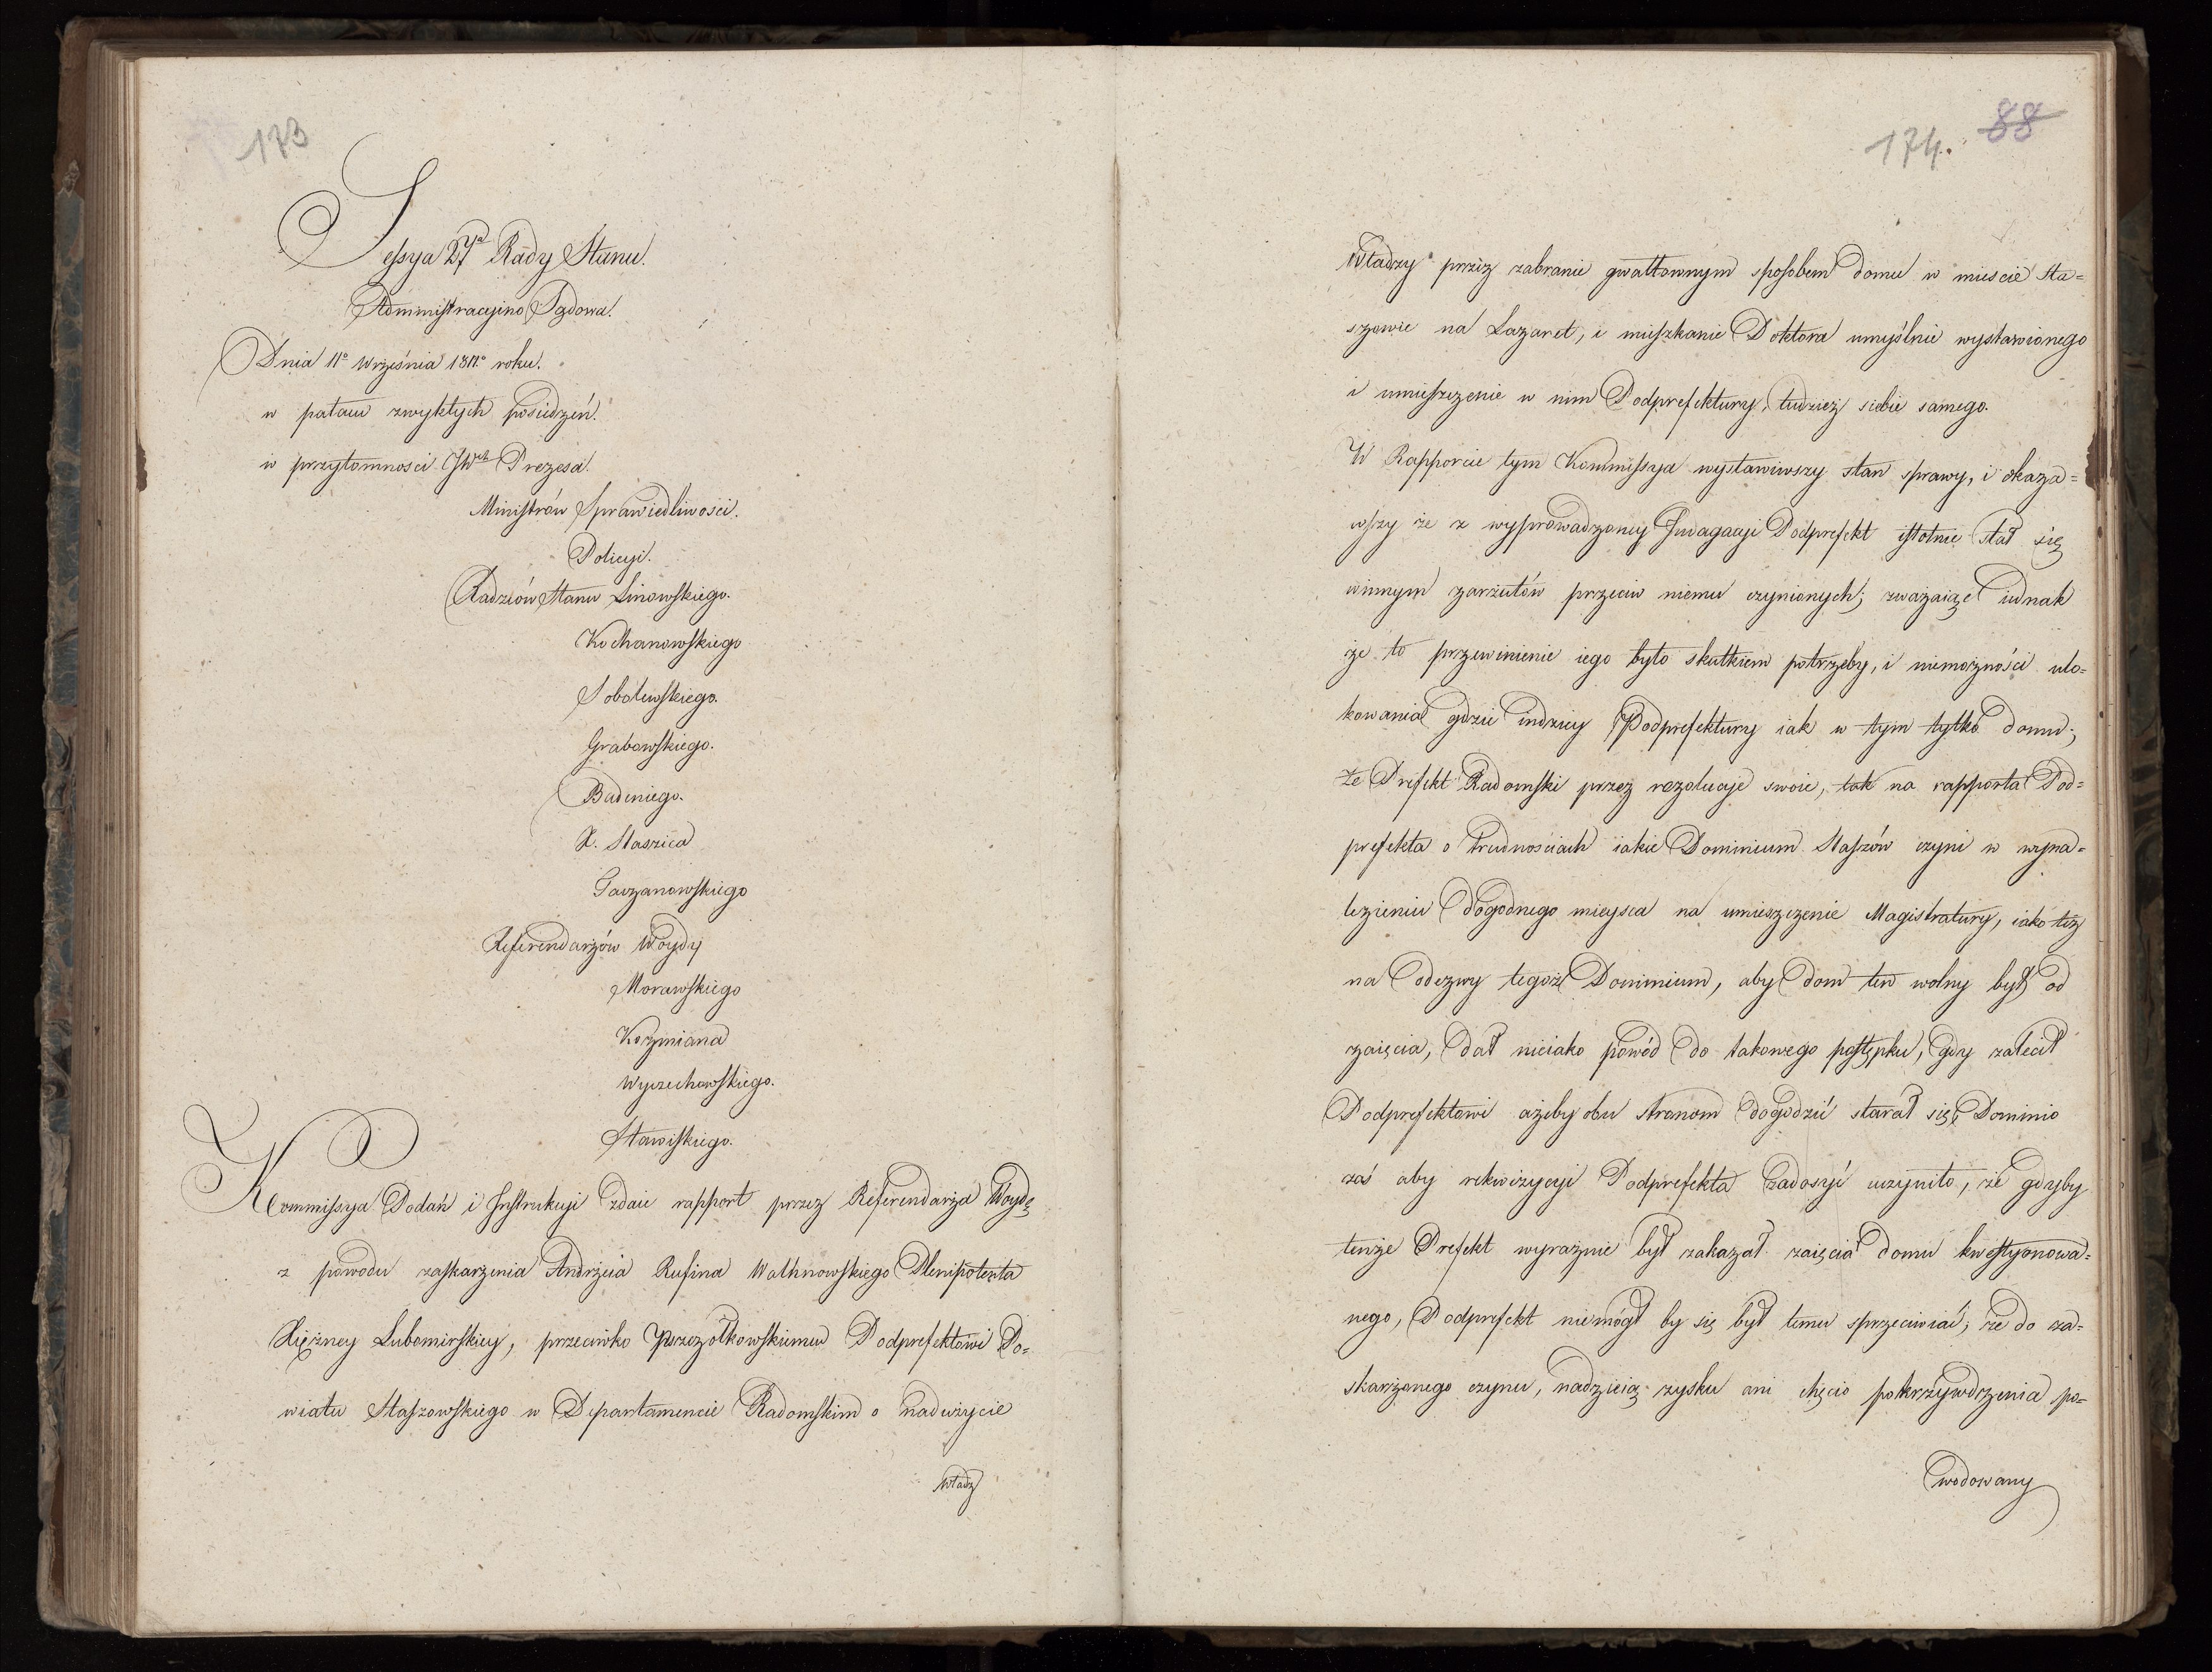 173
Sessya 27ya Rady Stanu.
Administracyino Sądowa.
Dnia 11o Września 1811o roku.
w pałacu zwykłych posiedzeń.
w przytomności JWch Prezesa.
Ministrów Sprawiedliwości.
Policyi.
Radzców Stanu Linowskiego.
Kochanowskiego
Sobolewskiego.
Grabowskiego.
Badeniego.
X. Staszica
Taczanowskiego
Referendarzów Woydy
Morawskiego
Kozmiana
Wyczechowskiego.
Stawiskiego.
Kommissya Podań i Instrukcyi zdaie rapport przez Referendarza Woydę
z powodu zaskarżenia Andrzeia Rufina Walhnowskiego Plenipotenta
Xiężney Lubomirskiey, przeciwko Pszczółkowskiemu Podprefektowi Po=
wiatu Staszowskiego w Departamencie Radomskim o nadużycie
władz
174. 88
Władzy przez zabranie gwałtownym sposobem domu w mieście Sta=
szowie na Lazaret, i mieszkanie Doktora umyślnie wystawionego
i umieszczenie w nim Podprefektury, tudzież siebie samego.
W Rapporcie tym Kommissya wystawiwszy stan sprawy, i okaza=
wszy że z wyprowadzoney Indagacyi Podprefekt istotnie stał się
winnym zarzutów przeciw niemu czynionych; zważaiąc iednak
że to przewinienie iego było skutkiem potrzeby, i niemożności ulo=
kowania gdzie indziey Podprefektury iak w tym tylko domu;
że Prefekt Radomski przez rezolucye swoie, tak na rapporta Pod=
prefekta o trudnościach iakie Dominium Staszów czyni w wyna=
lezieniu dogodnego mieysca na umieszczenie Magistratury, iako też
na odezwy tegoż Dominium, aby dom ten wolny był od
zaięcia, dał nieiako powód do takowego postępku, gdy zalecił
Podprefektowi ażeby obu stronom dogodzić starał się, Dominio
zaś aby rekwizycyi Podprefekta zadosyć uczyniło, że gdyby
tenże Prefekt wyraźnie był zakazał zaięcia domu kwestyonowa=
nego, Podprefekt niemógł by się był temu sprzeciwiać; że do za=
skarżonego czynu, nadzieią zysku ani chęcio pokrzywdzenia po=
wodowany